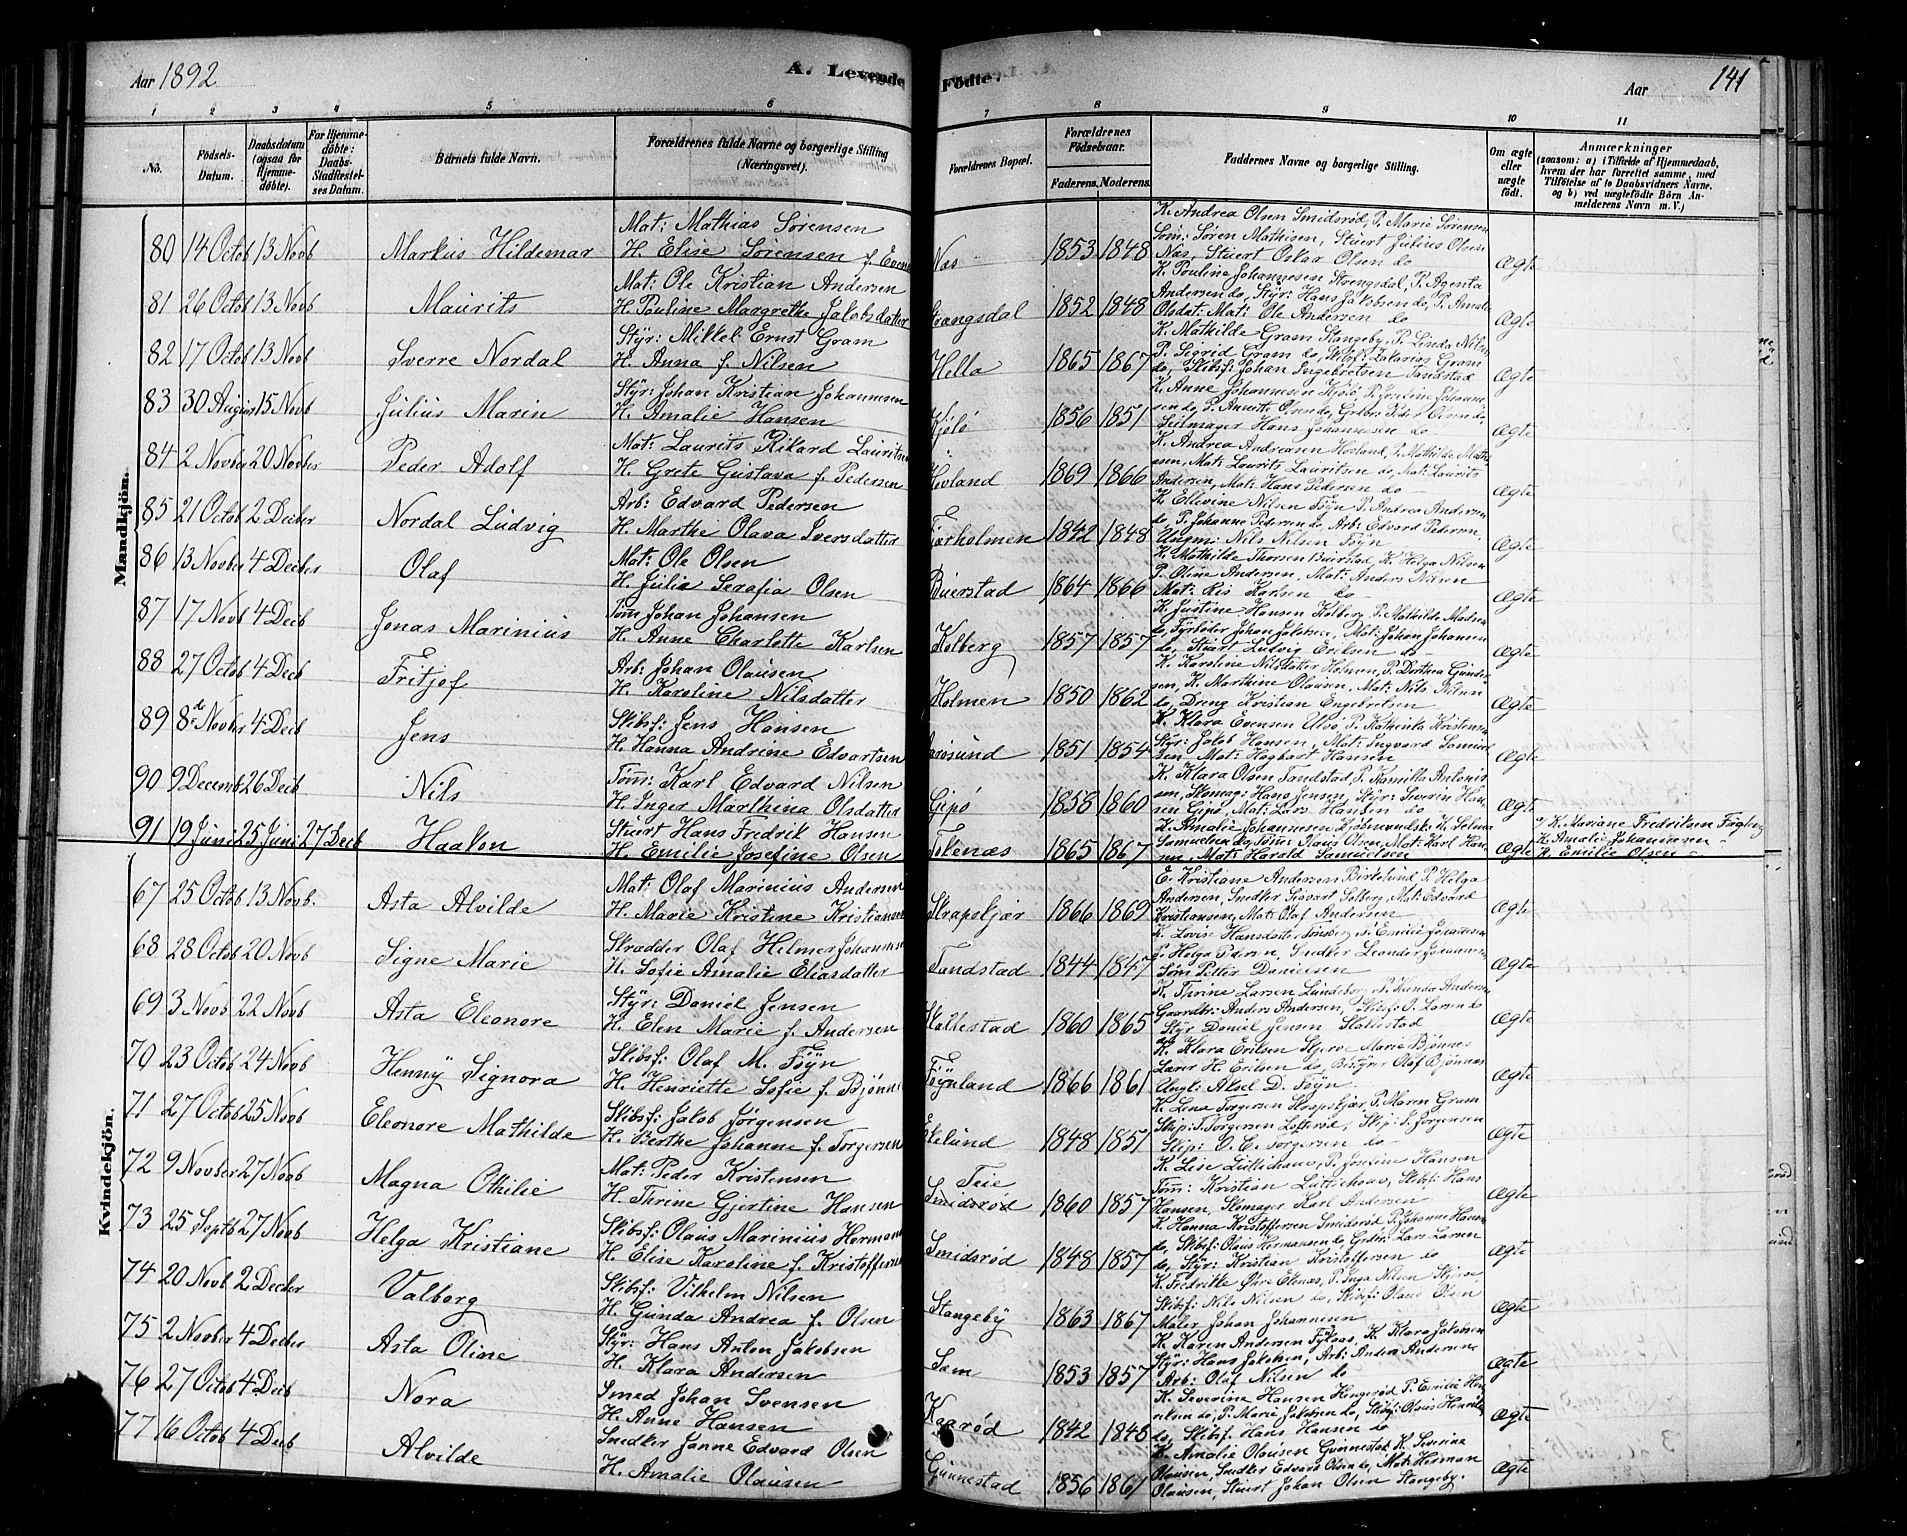 Aar 1892
A. Levende
Födte.
Aar
141
1 2 3 4 5 6 7 8 9 10 11
No.
Födsels-Datum.
Daabsdatum (ogsaa for Hjemmedöbte).
For Hjemmedöbte: Daabs-Stadfæstelses Datum.
Barnets fulde Navn.
Forældrenes fulde Navne og borgerlige Stilling (Næringsvei).
Forældrenes Bopæl.
Forældrenes Födselsaar.
Faderens. Moderens.
Faddernes Navne og borgerlige Stilling.
Om ægte eller uægte födt.
Anmærkninger (saasom: a) i Tilfælde af Hjemmedaab, hvem der har forrettet samme, med Tilföielse af to Daabsvidners Navne, og b) ved uægtefödte Börn Anmelderens Navn m. V.)
Mandkjön.
80 14 Octob 13 Novb Markus Hildemar Mat: Mathias Sørensen
H. Elise Sørensen f. Even Næs 1853 1848 Ægte
K. Andrea Olsen Smidsrød, P. Marie Sørensen
Tøm: Søren Mathisen, Stuert Julius Olsen
Næs, Stuert Oskar Olsen do
81 26 Octob 13 Novb Maurits Mat: Ole Kristian Andersen
H. Pouline Margrethe Jakobsdatter Strangsdal 1852 1848 Ægte
K. Pouline Johannesen, Strengsdal, P. Agenta
Andersen do, Styr: Hans Jakobsen do, P. Amalie
Olsdat: Mat: Ole Andersen do
82 17 Octob 13 Novb Sverre Nordal Styr: Mikkel Ernst Gram
H. Anna f. Nilsen Hella 1865 1867 Ægte
K. Mathilde Gram Stangeby, P. Linda Nilsen
P. Sigrid Gram do, Skibsf: Zakarias Gram
do, Skibsf: Johan Ingebretsen Tandstad
83 30 August 15 Novb Julius Marin Styr: Johan Kristian Johannesen
H. Amalie Hansen Kjøs 1856 1851 Ægte
K. Anne Johannesen Kjøs, P. Pouline Johannesen do, P. Annette Olsen do, Grdbr: Peder Olsen do
Seilmager Hans Johannesen do
84 2 Novber 20 Novber Peder Adolf Mat: Laurits Rikard Lauritsen
H. Grete Gustava f. Pedersen Hovland 1869 1866 Ægte
K. Andrea Andreasen Hovland, P. Mathilde
Mat: Laurits Lauritsen do, Mat: Laurits
Andersen, Mat: Hans Pedersen do
85 21 Octob 2 Decber Nordal Ludvig Arb: Edvard Pedersen
H. Marthe Olava Iversdatter Fjærholmen 1842 1848 Ægte
K. Ellevine Nilsen Føyn P. Andrea Andersen
do, P. Johanne Pedersen do, Arb: Edvard Pedersen,
Nils Nilsen Føyn
86 13 Novber 4 Decber Olaf Mat: Ole Olsen
H. Julia Serafia Olsen Buerstad 1864 1866 Ægte
K. Mathilde Thorsen Buerstad, K. Helga Nilsen
P. Oline Andersen, Mat: Anders Nilsen
Mat: Karlsen do
87 17 Novb 4 Decb Jonas Marinius Tøm: Johan Johansen
H. Anne Charlotte Karlsen Kolberg 1857 1857 Ægte
K. Justine Hansen Kolberg, P. Mathilde Madsen
do, Fyrbøder Johan Jakobsen, Mat: Johan Johansen
do, Stuert Ludvig Eriksen do
88 27 Octob 4 Decb Fritjof Arb: Johan Olausen
H. Karoline Nilsdatter Holmen 1850 1862 Ægte
K. Karoline Nilsdatter Holmen, P. Dorthea Gundersen, K. Marthine Olausen, Mat: Nils Nilsen
do, Dreng Kristian Engebretsen
89 8de Novber 4 Decb Jens Skibsf: Jens Hansen
H. Hanna Andrine Edvartsen Årøsund 1851 1854 Ægte
K. Klara Evensen P. Kathinka Kristensen
Styr: Jakob Hansen, Mat: Ingvard Samuelsen Mat: Hagbart Hansen
90 9 Decemb 26 Decb Nils Tøm: Karl Edvard Nilsen
H. Inger Marthina Olsdatter Gipø 1858 1860 Ægte
K. Klara Olsen Tandstad P. Kamilla Antonisen, Skomag: Hans Jensen, Styr: Severin Hansen Gipø, Mat: Lars Hansen do
91 19 Juni 25 Juni 27 Decb Haakon Stuert Hans Fredrik Hansen
H. Emilie Josefine Olsen Tokenæs 1865 1867 Ægte
K. Amalie Johannesen Bjølmundsk: K. Selma
Samuelsen do, Tøm: Claus Olsen, Mat: Karl Hansen, Mat: Harold Samuelsen
K. Mariane Fredriksen
K. Amalie Johannesen
K. Emilie Olsen
Kvindekjön.
67 25 Octob 13 Novb. Asta Alvilde Mat: Olaf Marinius Andersen
H. Marie Kristine Kristiansen Skrapskjær 1866 1869 Ægte
E. Kristiane Andersen Birkelund P. Helga
Andersen, Snedker Sigvart Solberg, Mat: Edvard
Kristiansen, Mat: Olaf Andersen
68 28 Octob 20 Novb Signe Marie Skrædder Olaf Helmer Johannesen
H. Sofie Amalie Eliasdatter Tandstad 1844 1847 Ægte
K. Lovise Hansdatter Tønsberg, P. Emilie Johannesen
P. Helga Pedersen, Snedker Leander Johannesen
Tøm Petter Danielsen
69 3 Novb 22 Novb Asta Eleonore Styr: Daniel Jensen
H. Elen Marie f. Andersen Skallestad 1860 1865 Ægte
K. Thrine Larsen Lundeborg, P. Minda Andersen
Gaardbr: Anders Andersen, Skibsf: O. Larsen do
Styr Daniel Jensen Skallestad
70 23 Octob 24 Novb Henny Signora Skibsf: Olaf M. Føyn
H. Henriette Sofie f. Bjønnes Føynland 1866 1861 Ægte
K. Klara Eriksen Skjerve Marie Bjønnes
Lærer H. Eriksen do, Bestyrer Olaf Bjønnes
Ungk: Aksel D. Føyn.
71 27 Octob 25 Novb Eleonore Mathilde Skibsf: Jakob Jørgensen
H. Berthe Johanne f. Torgersen Ekelund 1848 1851 Ægte
K. Lena Torgersen Skrapskjær, P. Maren Gram
Skip: T. Torgersen Lofterød, Skip: S. Jørgensen
Skip: O. E. Torgersen do
72 9 Novber 27 Novb Magna Othilie Mat: Peder Kristensen
H. Thrine Gjertine Hansen Teie
Smidsrød 1860 1857 Ægte
K. Lise Lüttichauv, P. Josefine Hansen
Tøm: Kristian Lüttichouv, Skibsf: Hans
Hansen, Skomager Karl Andersen
73 25 Septb 27 Novb Helga Kristiane Skibsf: Olaus Marinius Hermansen
H. Elise Karoline f. Kristoffersen Smidsrød 1848 1857 Ægte
K. Hanna Kristoffersen Smidsrød P. Johanne Hansen
do, Skibsf: Olaus Hermansen do, Grdbr: Lars Larsen
do, Styr: Kristian Kristoffersen do
74 20 Novb 2 Decber Valborg Skibsf: Vilhelm Nilsen
H. Gunda Andrea f. Olsen Stangeby 1863 1867 Ægte
K. Fredrikke Øhre Ekenæs, P. Inga Nilsen Skjerve,
Skibsf: Nils Nilsen do, Skibsf: Olaus Olsen
Maler Johan Johannesen
75 2 Novber 4 Decber Asta Oline Styr: Hans Anton Jakobsen
H. Klara Andersen Sem 1853 1857 Ægte
K. Karen Andersen K. Klara Jakobsen
Styr: Hans Jakobsen, Arb: Anders Andersen
Arb: Olaf Nilsen do
76 27 Octob 4 Decb Nora Smed Johan Svensen
H. Anne Hansen Kaarød 1842 1848 Ægte
K. Severine Hansen Hengerød P. Emilie Henriksen do, P. Marie Jakobsen do, Skibsf: Olaus Henriks
do, Skibsf. Hans Hansen do
77 16 Octob 4 Decb Alvilde Snedker Janne Edvard Olsen
H. Amalie Olausen Gunnestad 1856 1861 Ægte
K. Amalie Olausen Gunnestad K. Severine
Olausen, Snedker Edvard Olsen do, Mat: Herman
Olausen, Stuert Johan Olsen Stangeby.